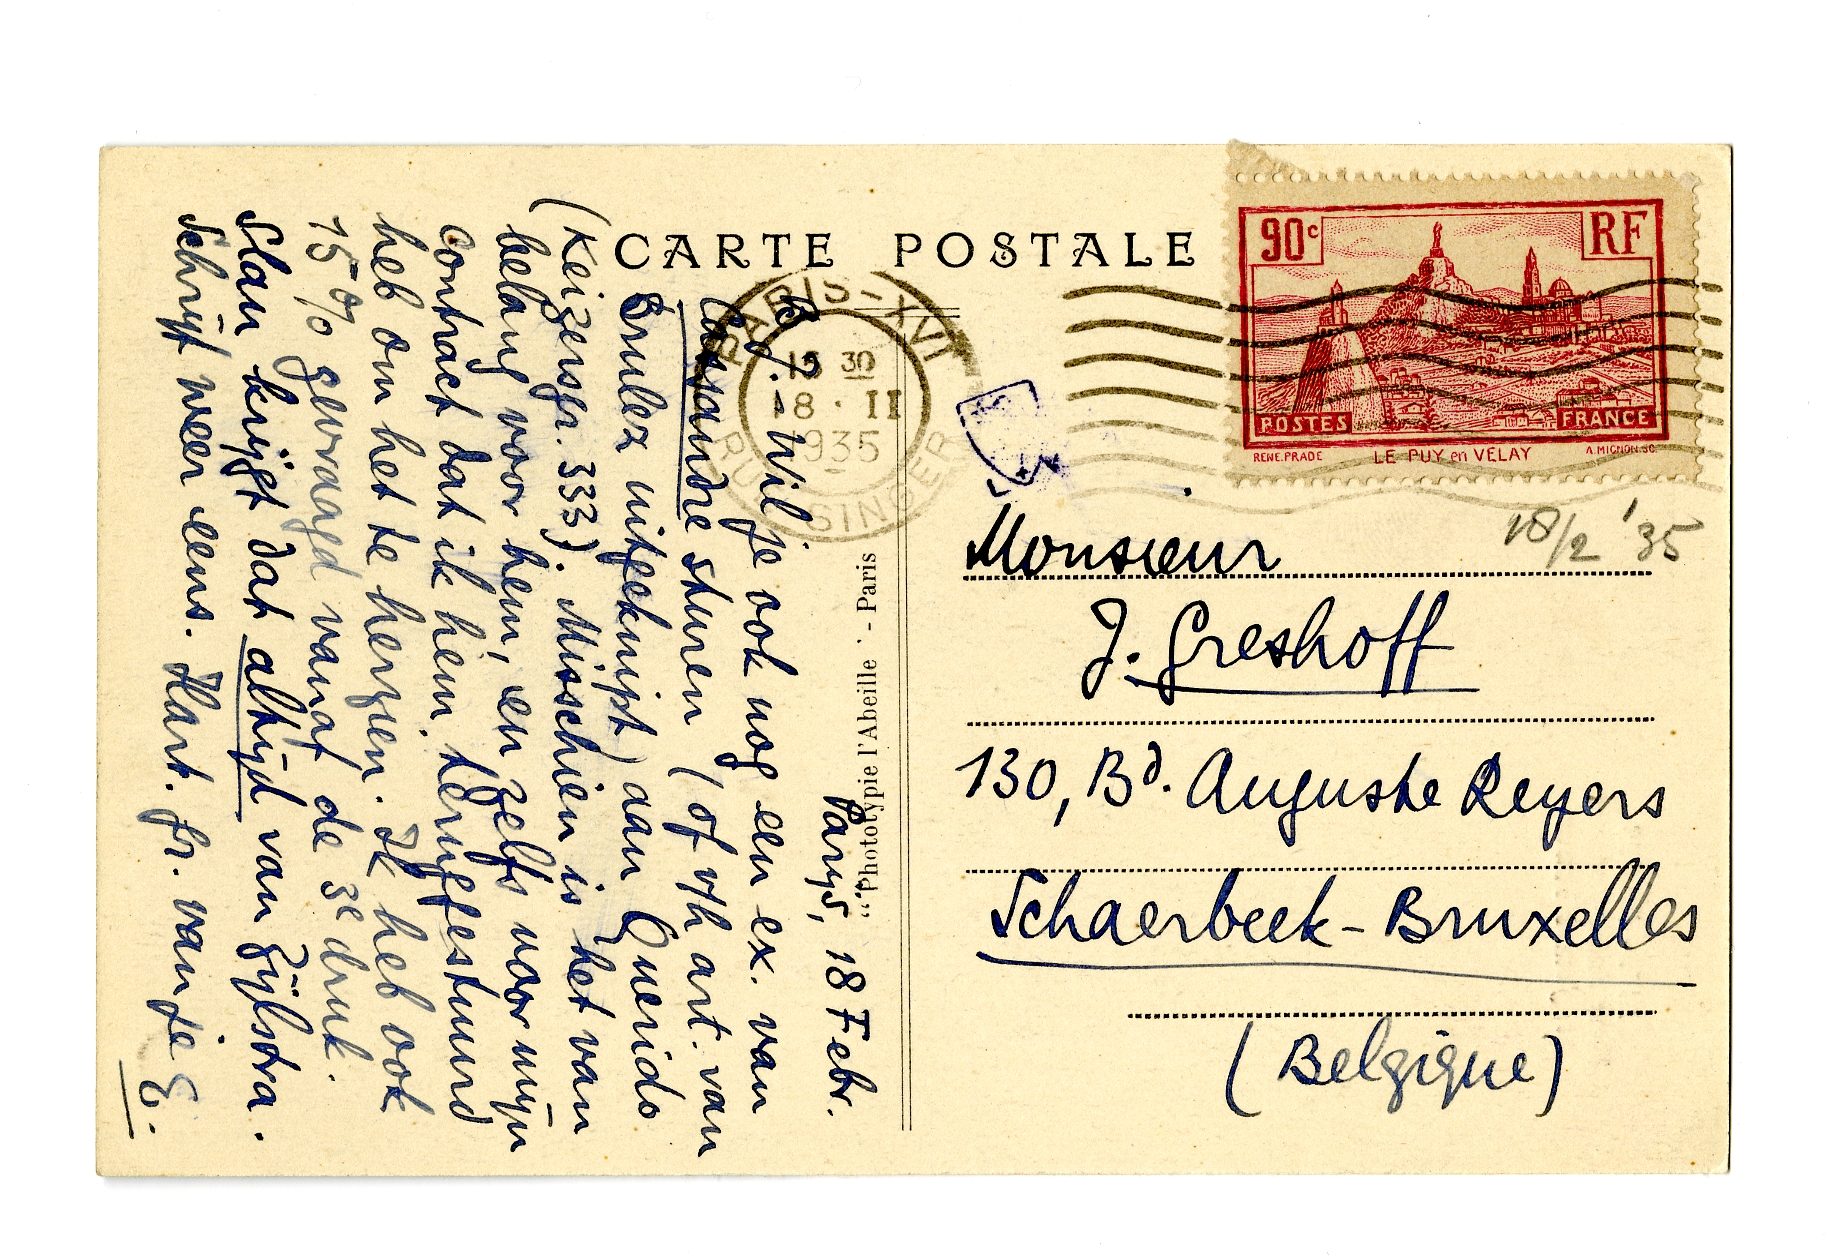 CARTE POSTALE
90c
RF
POSTES
FRANCE
RENE.PRADE
LE PUY en VELAY
A.MIGNON.SC
PARIS-XVI
15 30
18 · II
1935
RUE SINGER
18/2 '35
Monsieur
J. Greshoff
130, Bd. Auguste Reyers
Schaerbeek-Bruxelles
(Belgique)
"Phototypie l'Abeille" - Paris
Parijs, 18 Febr.
B.J. Wil je ook nog een ex. van
Cassandre sturen (of v/h art. van
Brulez uitgeknipt) aan Querido
(Keizersgr. 333). Misschien is het van
belang voor hem, en zelfs voor mijn
contract dat ik hem teruggestuurd
heb om het te herzien. Ik heb ook
15% gevraagd vanaf de 3e druk.
Slau krijgt dat altijd van Zijlstra.
Schrijf weer eens. Hart. gr. van je
E.